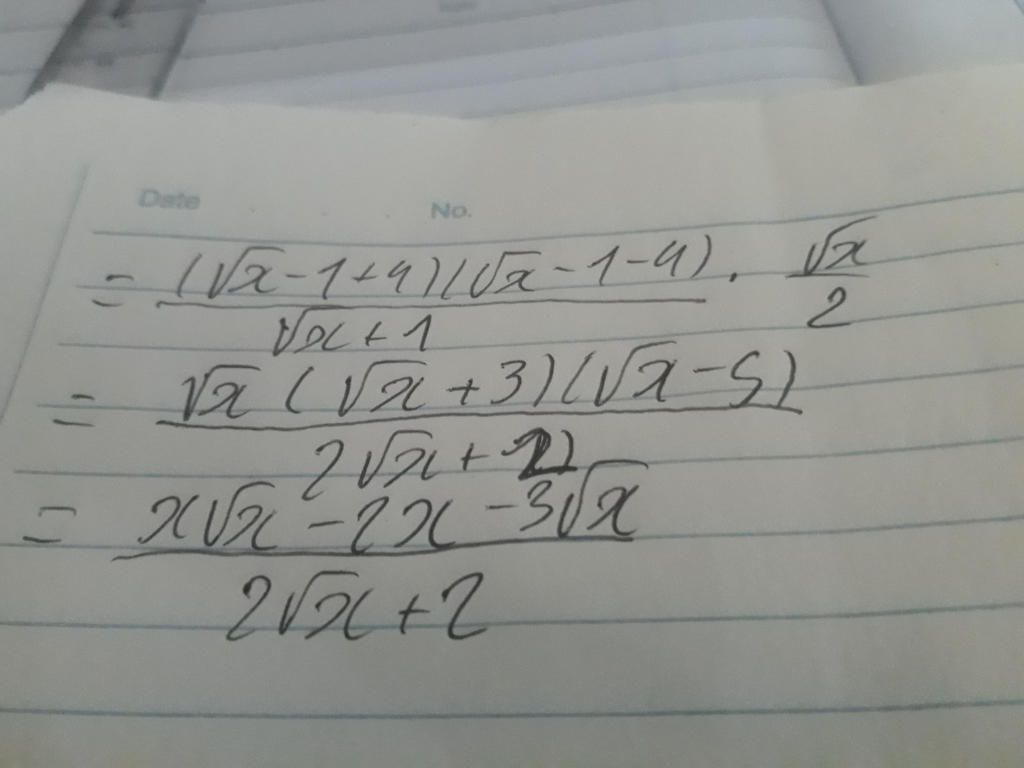 Date No.
= (√x - 1 + 4)(√x - 1 - 4) / √x + 1 · √x / 2
= √x (√x + 3)(√x - 5) / 2√x + 2
= x√x - 2x - 3√x / 2√x + 2